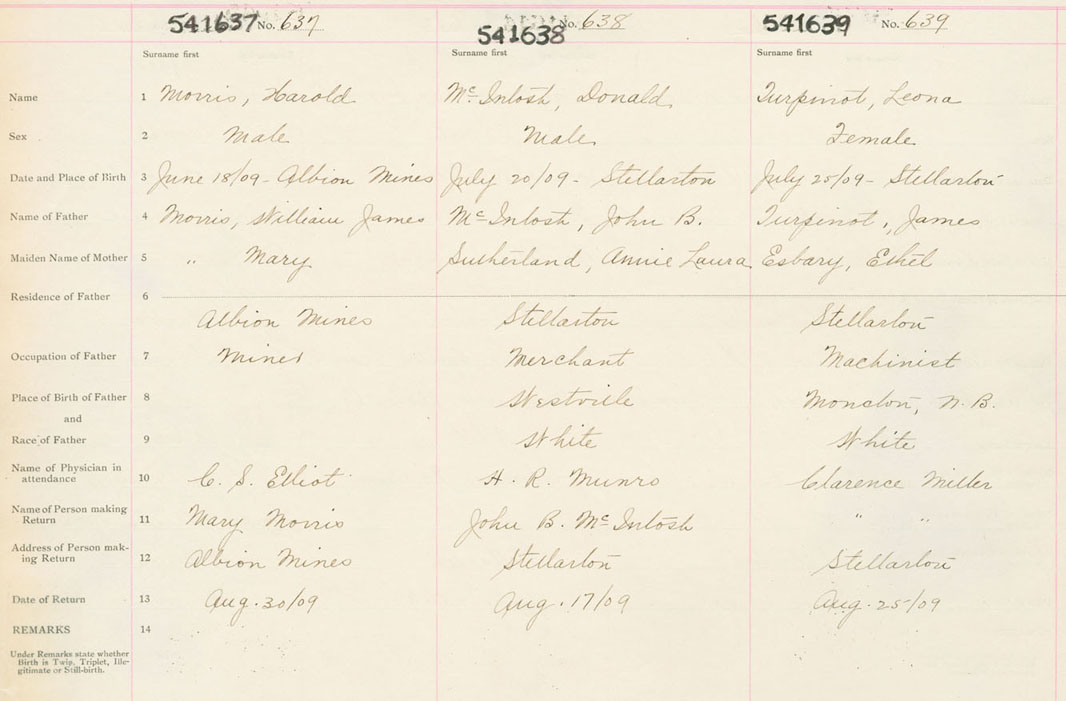 541637 No. 637 541638 No. 638 541639 No. 639
Surname first Surname first Surname first
Name 1 Morris, Harold McIntosh, Donald Turpinot, Leona
Sex 2 Male Male Female
Date and Place of Birth 3 June 18/09 - Albion Mines July 20/09 - Stellarton July 25/09 - Stellarton
Name of Father 4 Morris, William James McIntosh, John B. Turpinot, James
Maiden Name of Mother 5 " Mary Sutherland, Annie Laura Esbary, Ethel
Residence of Father 6
Albion Mines Stellarton Stellarton
Occupation of Father 7 Miner Merchant Machinist
Place of Birth of Father 8 Westville Moncton, N.B.
and
Race of Father 9 White White
Name of Physician in
attendance 10 C. S. Elliot H. R. Munro Clarence Miller
Name of Person making
Return 11 Mary Morris John B. McIntosh " "
Address of Person mak-
ing Return 12 Albion Mines Stellarton Stellarton
Date of Return 13 Aug. 30/09 Aug. 17/09 Aug. 25/09
REMARKS 14
Under Remarks state whether
Birth is Twin, Triplet, Ille-
gitimate or Still-birth.